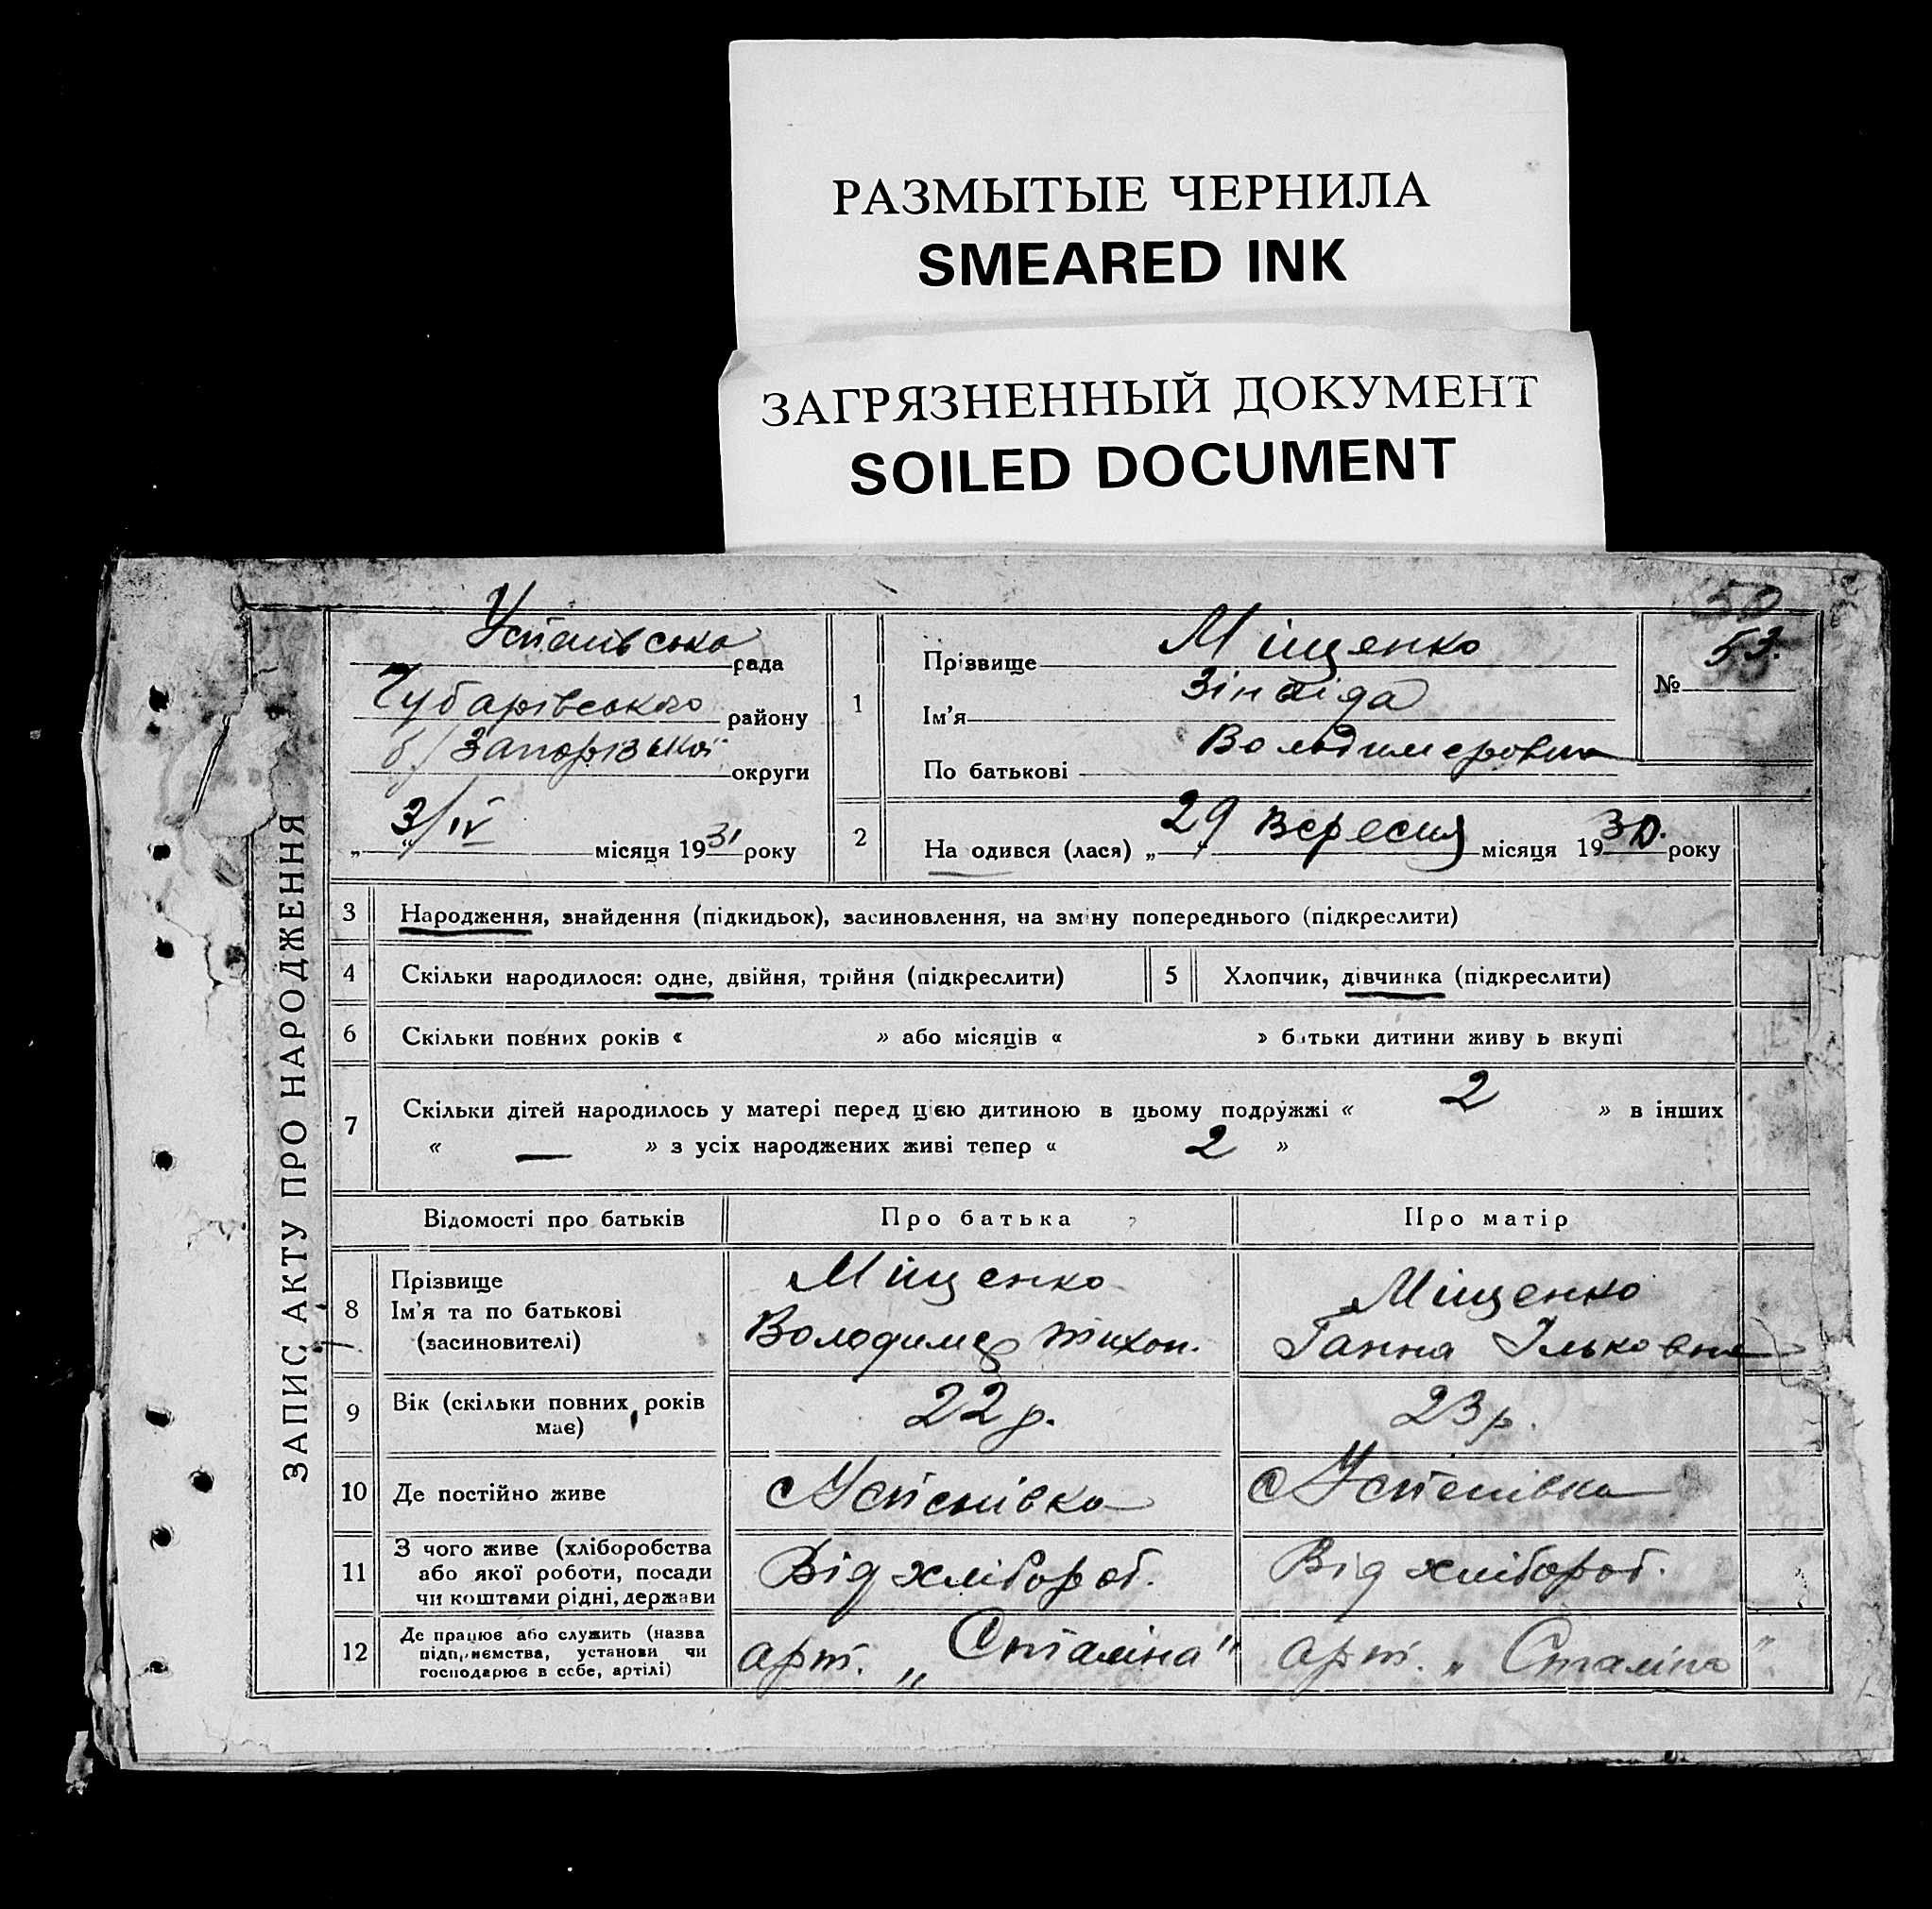 РАЗМЫТЫЕ ЧЕРНИЛА
SMEARED INK
ЗАГРЯЗНЕННЫЙ ДОКУМЕНТ
SOILED DOCUMENT
ЗАПИС АКТУ ПРО НАРОДЖЕННЯ
рада
Чубарівського району
б/ Запорізької округи
„ 3/IV " місяця 1931 року
50
№ 53.
1 Прізвище Міщенко
Ім'я Зінаіда
По батькові Володимеровна
2 На одився (лася) „ 29 " Вересня місяця 1930. року
3 Народження, знайдення (підкидьок), засиновлення, на зміну попереднього (підкреслити)
4 Скільки народилося: одне, двійня, трійня (підкреслити)
5 Хлопчик, дівчинка (підкреслити)
6 Скільки повних років « » або місяців « » батьки дитини живу ь вкупі
7 Скільки дітей народилось у матері перед цією дитиною в цьому подружжі « 2 » в інших
« — » з усіх народжених живі тепер « 2 »
Відомості про батьків Про батька Про матір
8 Прізвище
Ім'я та по батькові
(засиновителі)
Міщенко
Володимер Тихон.
Міщенко
Ганна Ільковна
9 Вік (скільки повних років
має)
22 р.
23 р.
10 Де постійно живе
с Успенівка
с Успенівка
11 З чого живе (хліборобства
або якої роботи, посади
чи коштами рідні, держави
Від хлібороб.
Від хлібороб.
12 Де працює або служить (назва
підприємства, установи чи
господарює в себе, артілі)
арт. „Сталіна"
арт. „Сталіна"